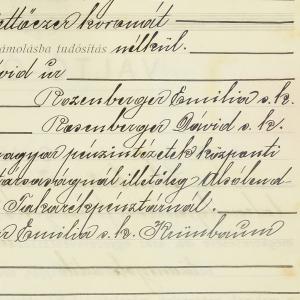 ettőezer koronát
ámolásba tudósítás nélkül.
vid úr
Rozenberger Emilia s.k.
Rosenberger Dávid s.k.
magyar pénzintézetek központi
társaságnál illetőleg Alsólend
Takarékpénztárnál.
r Emilia s.k. Krünbaum